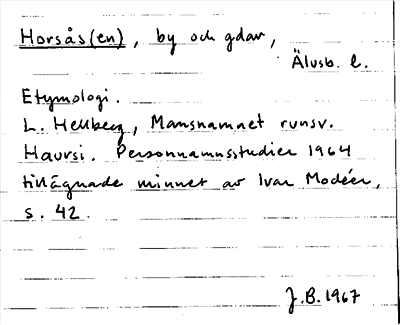 Horsås(en), by och gdar,
Älvsb. l.
Etymologi.
L. Hellberg, Mansnamnet runsv.
Haursi. Personnamnsstudier 1964
tillägnade minnet av Ivar Modéer,
s. 42.
J.B. 1967